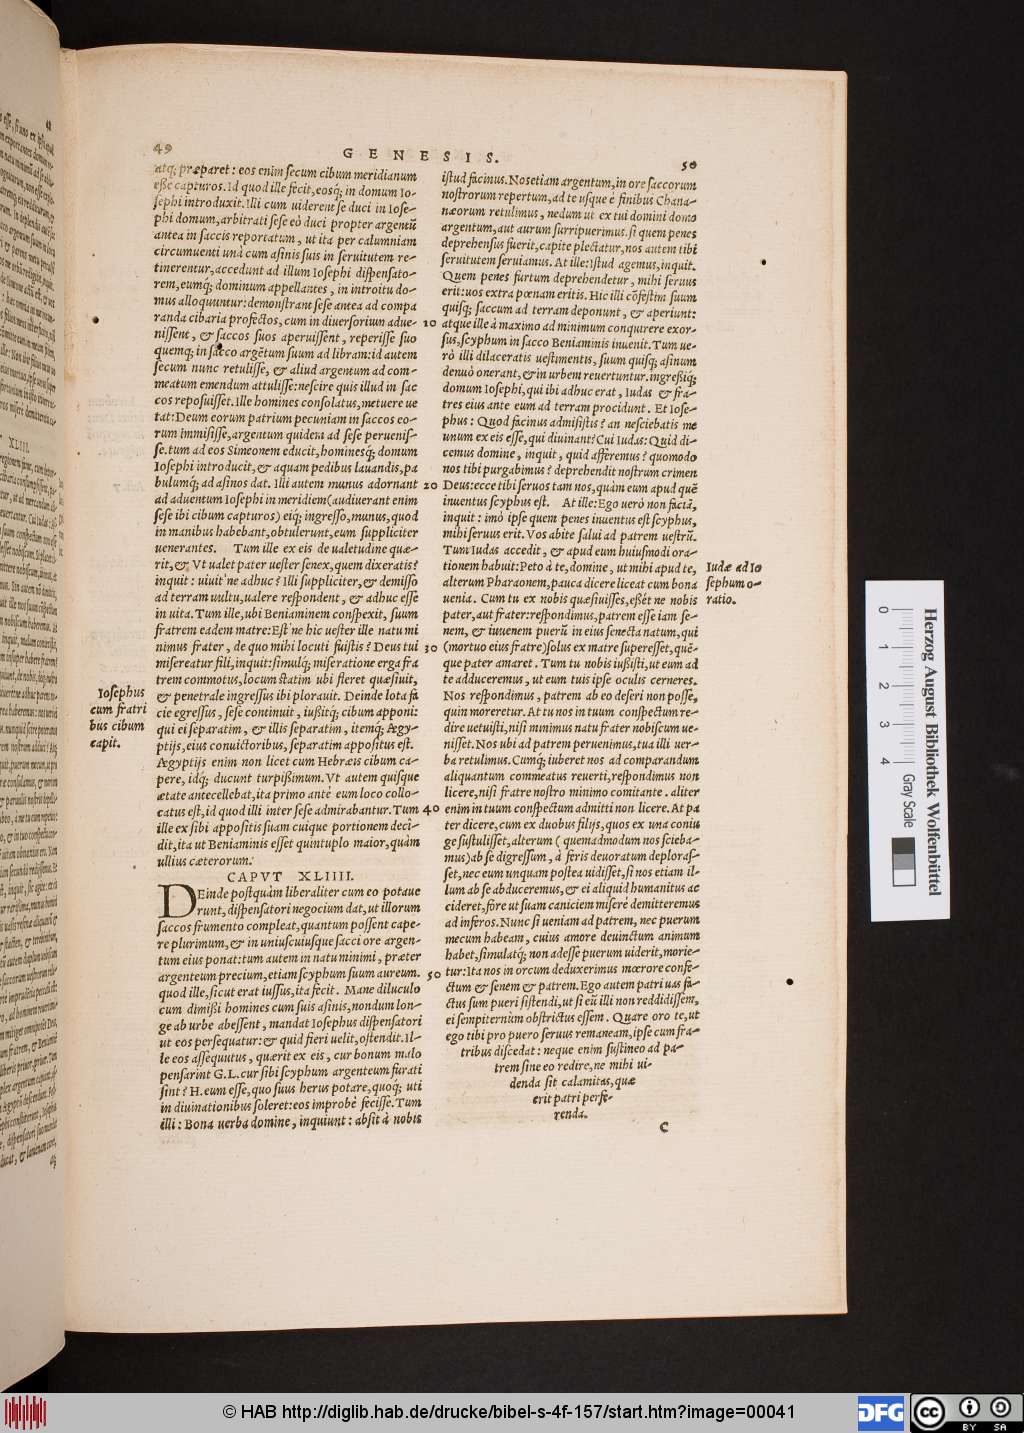 49
GENESIS.
50
atq; præparet: eos enim secum cibum meridianum
esse capturos. Id quod ille fecit, eosq; in domum Io-
sephi introduxit. Illi cum uiderent se duci in Iose-
phi domum, arbitrati sese eò duci propter argentũ
antea in saccis reportatum, ut ita per calumniam
circumuenti unà cum asinis suis in seruitutem re-
tinerentur, accedunt ad illum Iosephi dispensato-
rem, eumq; dominum appellantes, in introitu do-
mus alloquuntur: demonstrant sese antea ad compa
randa cibaria profectos, cum in diuersorium adue-
nissent, & saccos suos aperuissent, reperisse suo
quemq; in sacco argẽtum suum ad libram: id autem
secum nunc retulisse, & aliud argentum ad com-
meatum emendum attulisse: nescire quis illud in sac
cos reposuisset. Ille homines consolatus, metuere ue
tat: Deum eorum patrium pecuniam in saccos eo-
rum immisisse, argentum quidem ad sese peruenis-
se. tum ad eos Simeonem educit, hominesq; domum
Iosephi introducit, & aquam pedibus lauandis, pa
bulumq; ad asinos dat. Illi autem munus adornant
ad aduentum Iosephi in meridiem (audiuerant enim
sese ibi cibum capturos) eiq; ingresso, munus, quod
in manibus habebant, obtulerunt, eum suppliciter
uenerantes. Tum ille ex eis de ualetudine quæ-
rit, &, Vt ualet pater uester senex, quem dixeratis?
inquit: uiuit'ne adhuc? Illi suppliciter, & demisso
ad terram uultu, ualere respondent, & adhuc esse
in uita. Tum ille, ubi Beniaminem conspexit, suum
fratrem eadem matre: Est'ne hic uester ille natu mi
nimus frater, de quo mihi locuti fuistis? Deus tui
misereatur fili, inquit: simulq; miseratione erga fra
trem commotus, locum statim ubi fleret quæsiuit,
& penetrale ingressus ibi plorauit. Deinde lota fa
cie egressus, sese continuit, iußitq; cibum apponi:
qui ei separatim, & illis separatim, itemq; Ægy-
ptijs, eius conuictoribus, separatim appositus est.
Ægyptijs enim non licet cum Hebræis cibum ca-
pere, idq; ducunt turpißimum. Vt autem quisque
ætate antecellebat, ita primo ante eum loco collo-
catus est, id quod illi inter sese admirabantur. Tum
ille ex sibi appositis suam cuique portionem deci-
dit, ita ut Beniaminis esset quintuplo maior, quàm
ullius cæterorum.
CAPVT XLIIII.
DEinde postquàm liberaliter cum eo potaue
runt, dispensatori negocium dat, ut illorum
saccos frumento compleat, quantum possent cape-
re plurimum, & in uniuscuiusque sacci ore argen-
tum eius ponat: tum autem in natu minimi, præter
argenteum precium, etiam scyphum suum aureum.
quod ille, sicut erat iussus, ita fecit. Mane diluculo
cum dimißi homines cum suis asinis, nondum lon-
ge ab urbe abessent, mandat Iosephus dispensatori
ut eos persequatur: & quid fieri uelit, ostendit. Il-
le eos assequutus, quærit ex eis, cur bonum malo
pensarint G.L. cur sibi scyphum argenteum furati
sint? H. eum esse, quo suus herus potare, quoq; uti
in diuinationibus soleret: eos improbè fecisse. Tum
illi: Bona uerba domine, inquiunt: absit à nobis
Iosephus
cum fratri
bus cibum
capit.
10
20
30
40
50
istud facinus. Nos etiam argentum, in ore saccorum
nostrorum repertum, ad te usque è finibus Chana-
næorum retulimus, nedum ut ex tui domini domo
argentum, aut aurum surripuerimus. si quem penes
deprehensus fuerit, capite plectatur, nos autem tibi
seruitutem seruiamus. At ille: Istud agemus, inquit.
Quem penes furtum deprehendetur, mihi seruus
erit: uos extra pœnam eritis. Hic illi cõfestim suum
quisq; saccum ad terram deponunt, & aperiunt:
atque ille à maximo ad minimum conquirere exor-
sus, scyphum in sacco Beniaminis inuenit. Tum ue-
rò illi dilaceratis uestimentis, suum quisq; asinum
denuò onerant, & in urbem reuertuntur. ingreßiq;
domum Iosephi, qui ibi adhuc erat, Iudas & fra-
tres eius ante eum ad terram procidunt. Et Iose-
phus: Quod facinus admisistis? an nesciebatis me
unum ex eis esse, qui diuinant? Cui Iudas: Quid di-
cemus domine, inquit, quid afferemus? quomodo
nos tibi purgabimus? deprehendit nostrum crimen
Deus: ecce tibi seruos tam nos, quàm eum apud quẽ
inuentus scyphus est. At ille: Ego uerò non faciã,
inquit: imò ipse quem penes inuentus est scyphus,
mihi seruus erit. Vos abite salui ad patrem uestrũ.
Tum Iudas accedit, & apud eum huiusmodi ora-
tionem habuit: Peto à te, domine, ut mihi apud te,
alterum Pharaonem, pauca dicere liceat cum bona
uenia. Cum tu ex nobis quæsiuisses, eßét ne nobis
pater, aut frater: respondimus, patrem esse iam se-
nem, & iuuenem puerũ in eius senecta natum, qui
(mortuo eius fratre) solus ex matre superesset, quẽ-
que pater amaret. Tum tu nobis iußisti, ut eum ad
te adduceremus, ut eum tuis ipse oculis cerneres.
Nos respondimus, patrem ab eo deseri non posse,
quin moreretur. At tu nos in tuum conspectum re-
dire uetuisti, nisi minimus natu frater nobiscum ue-
nisset. Nos ubi ad patrem peruenimus, tua illi uer-
ba retulimus. Cumq; iuberet nos ad comparandum
aliquantum commeatus reuerti, respondimus non
licere, nisi fratre nostro minimo comitante. aliter
enim in tuum conspectum admitti non licere. At pa
ter dicere, cum ex duobus filijs, quos ex una coniu
ge sustulisset, alterum (quemadmodum nos scieba-
mus) ab se digressum, à feris deuoratum deploras-
set, nec eum unquam postea uidisset, si nos etiam il-
lum ab se abduceremus, & ei aliquid humanitus ac
cideret, fore ut suam caniciem miserè demitteremus
ad inferos. Nunc si ueniam ad patrem, nec puerum
mecum habeam, cuius amore deuinctum animum
habet, simulatq; non adesse puerum uiderit, morie-
tur: Ita nos in orcum deduxerimus mœrore confe-
ctum & senem & patrem. Ego autem patri uas fa-
ctus sum pueri sistendi, ut si eũ illi non reddidissem,
ei sempiternùm obstrictus essem. Quare oro te, ut
ego tibi pro puero seruus remaneam, ipse cum fra-
tribus discedat: neque enim sustineo ad pa-
trem sine eo redire, ne mihi ui-
denda sit calamitas, quæ
erit patri perfe-
renda.
C
Iudæ ad Io
sephum o-
ratio.
Herzog August Bibliothek Wolfenbüttel
0 1 2 3 4
Gray Scale
© HAB http://diglib.hab.de/drucke/bibel-s-4f-157/start.htm?image=00041
DFG
cc BY SA